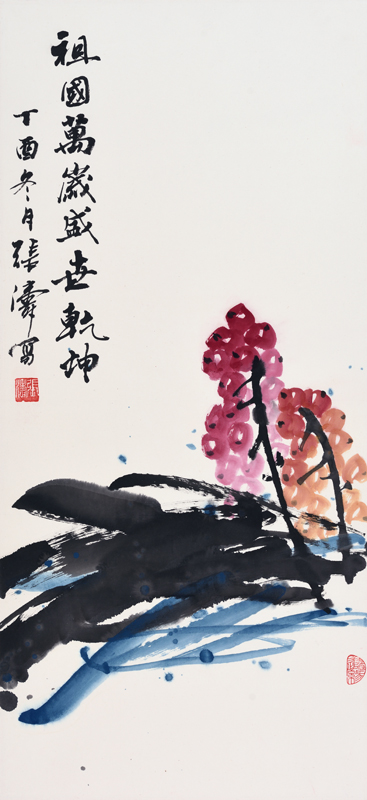 祖國萬歲盛世乾坤
丁酉冬月張濤寫